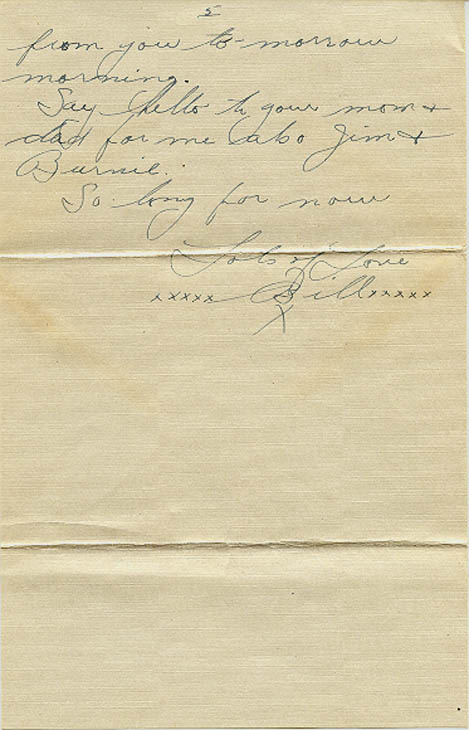 5
from you to-morrow
morning.
Say hello to your mom +
dad for me also Jim +
Burnie.
So long for now
Lots of Love
xxxxx Bill xxxxx
X